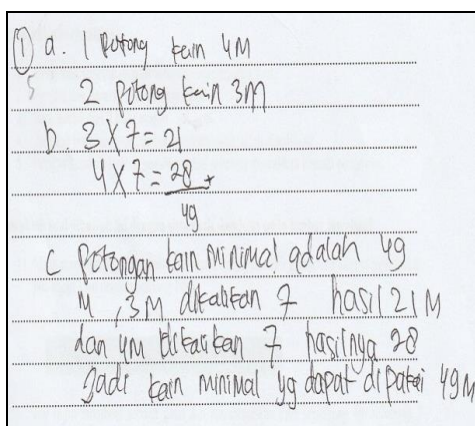 ① a. 1 potong kain 4M
5 2 potong kain 3M
b. 3 x 7 = 21
4 x 7 = 28 +
49
C potongan kain minimal adalah 49
M, 3M dikalikan 7 hasil 21 M
dan 4M dikalikan 7 hasilnya 28
Jadi kain minimal yg dapat dipakai 49M